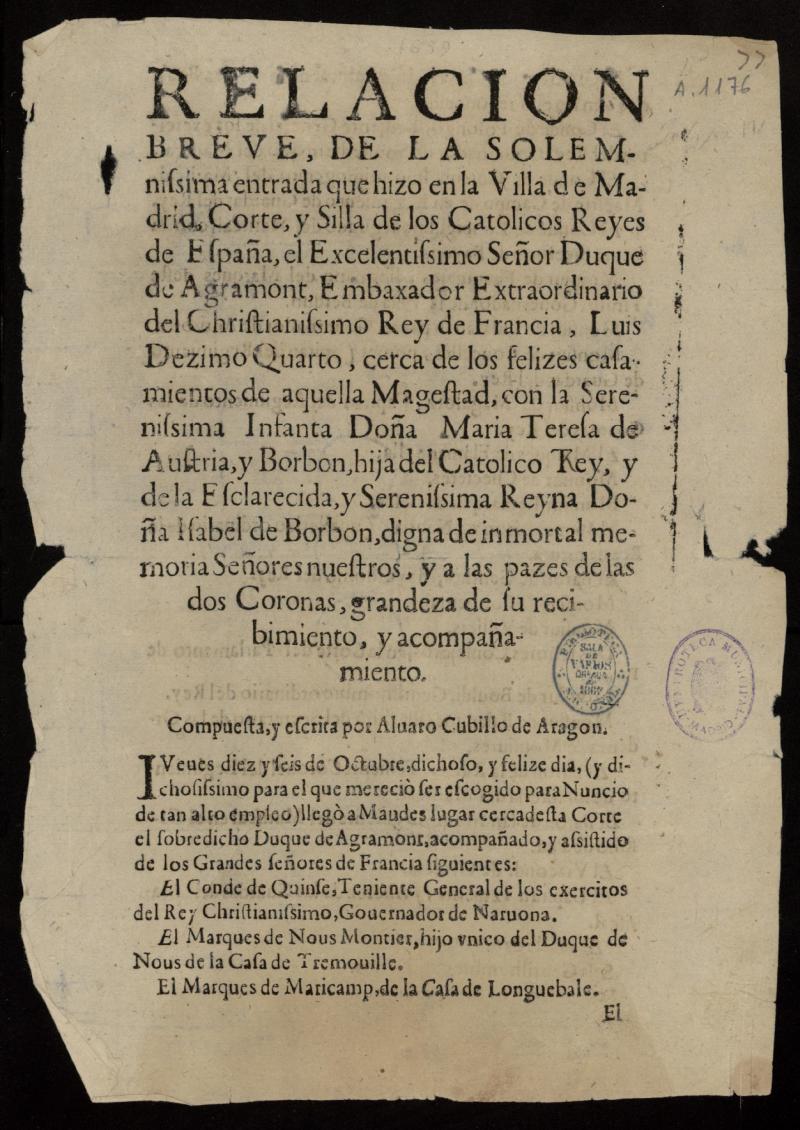 77
A.1176
RELACION
BREVE, DE LA SOLEM-
niſsima entrada que hizo en la Villa de Ma-
drid, Corte, y Silla de los Catolicos Reyes
de Eſpaña, el Excelentiſsimo Señor Duque
de Agramont, Embaxador Extraordinario
del Chriſtianiſsimo Rey de Francia, Luis
Dezimo Quarto, cerca de los felizes caſa-
mientos de aquella Mageſtad, con la Sere-
niſsima Infanta Doña Maria Tereſa de
Auſtria, y Borbon, hija del Catolico Rey, y
de la Eſclarecida, y Sereniſsima Reyna Do-
ña Iſabel de Borbon, digna de inmortal me-
moria Señores nueſtros, y a las pazes de las
dos Coronas, grandeza de ſu reci-
bimiento, y acompaña-
miento.
SALA
DE
VARIOS
HEMEROTECA MUNICIPAL
Compueſta, y eſcrita por Aluaro Cubillo de Aragon.
IVeues diez y ſeis de Octubre, dichoſo, y felize dia, (y di-
choſiſsimo para el que mereciò ſer eſcogido para Nuncio
de tan alto empleo) llegò a Maudes lugar cerca deſta Corte
el ſobredicho Duque de Agramont, acompañado, y aſsiſtido
de los Grandes ſeñores de Francia ſiguientes:
El Conde de Quinſe, Teniente General de los exercitos
del Rey Chriſtianiſsimo, Gouernador de Naruona.
El Marques de Nous Montier, hijo vnico del Duque de
Nous de la Caſa de Tremouille.
El Marques de Maricamp, de la Caſa de Longuebale.
El